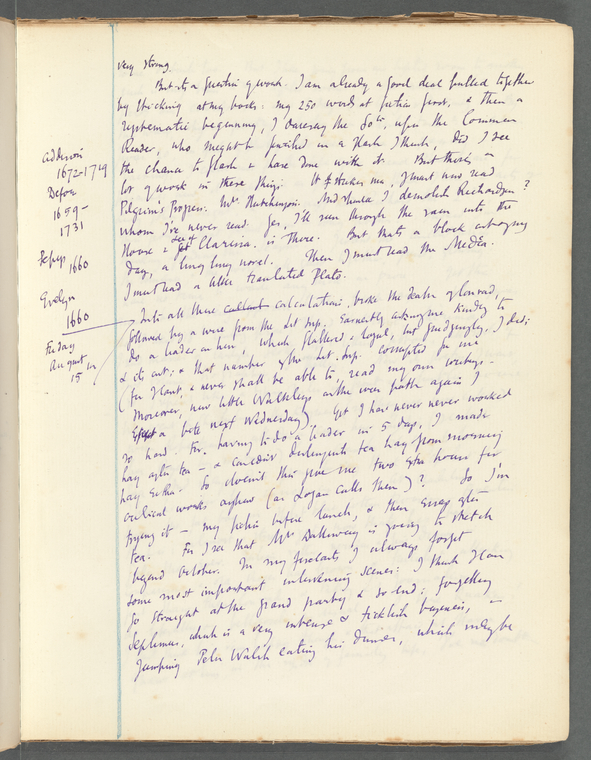 very strong.
But it's a question of work. I am already a good deal pulled together
by sticking at my books: my 250 words of fiction first, & then a
systematic beginning, I daresay the 80th, upon the Common
Reader, who might be finished in a flash I think, did I see
the chance to flash & have done with it. But there's a
lot of work in these things. It strikes me, I must now read
Pilgrim's Progress: Mrs Hutchinson. And should I demolish Richardson?
whom I've never read. Yes, I'll run through the rain into the
house & see if Clarissa is there. But that's a block out of my
day, a long long novel. Then I must read the Medea.
I must read a little translated Plato.
Addison
1672-1719
Defoe
1659-
1731
Pepys 1660
Evelyn
1660
Friday
August
15th
Into all these calculations, broke the death of Conrad,
followed by a wire from the Lit. Sup. earnestly asking me kindly to
do a leader on him, which flattered & loyal, but grudgingly, I did;
& it's out; & that number of the Lit. Sup. corrupted for me
(for I can't, & never shall be able to, read my own writings.
Moreover, now little Walkley's on the war path again I
expect a bite next Wednesday). Yet I have never never worked
so hard. For, having to do a leader in 5 days, I made
hay after tea – & couldn't distinguish tea hay from morning
hay either. So doesn't this give me two extra hours for
critical works anyhow (as Logan calls them)? So I'm
trying it – my fiction before lunch, & then essays after
tea. For I see that Mrs Dalloway is going to stretch
beyond October. In my forecasts I always forget
some most important intervening scenes: I think I can
go straight at the grand party & so end; forgetting
Septimus, which is a very intense & ticklish business, –
jumping Peter Walsh eating his dinner, which may be